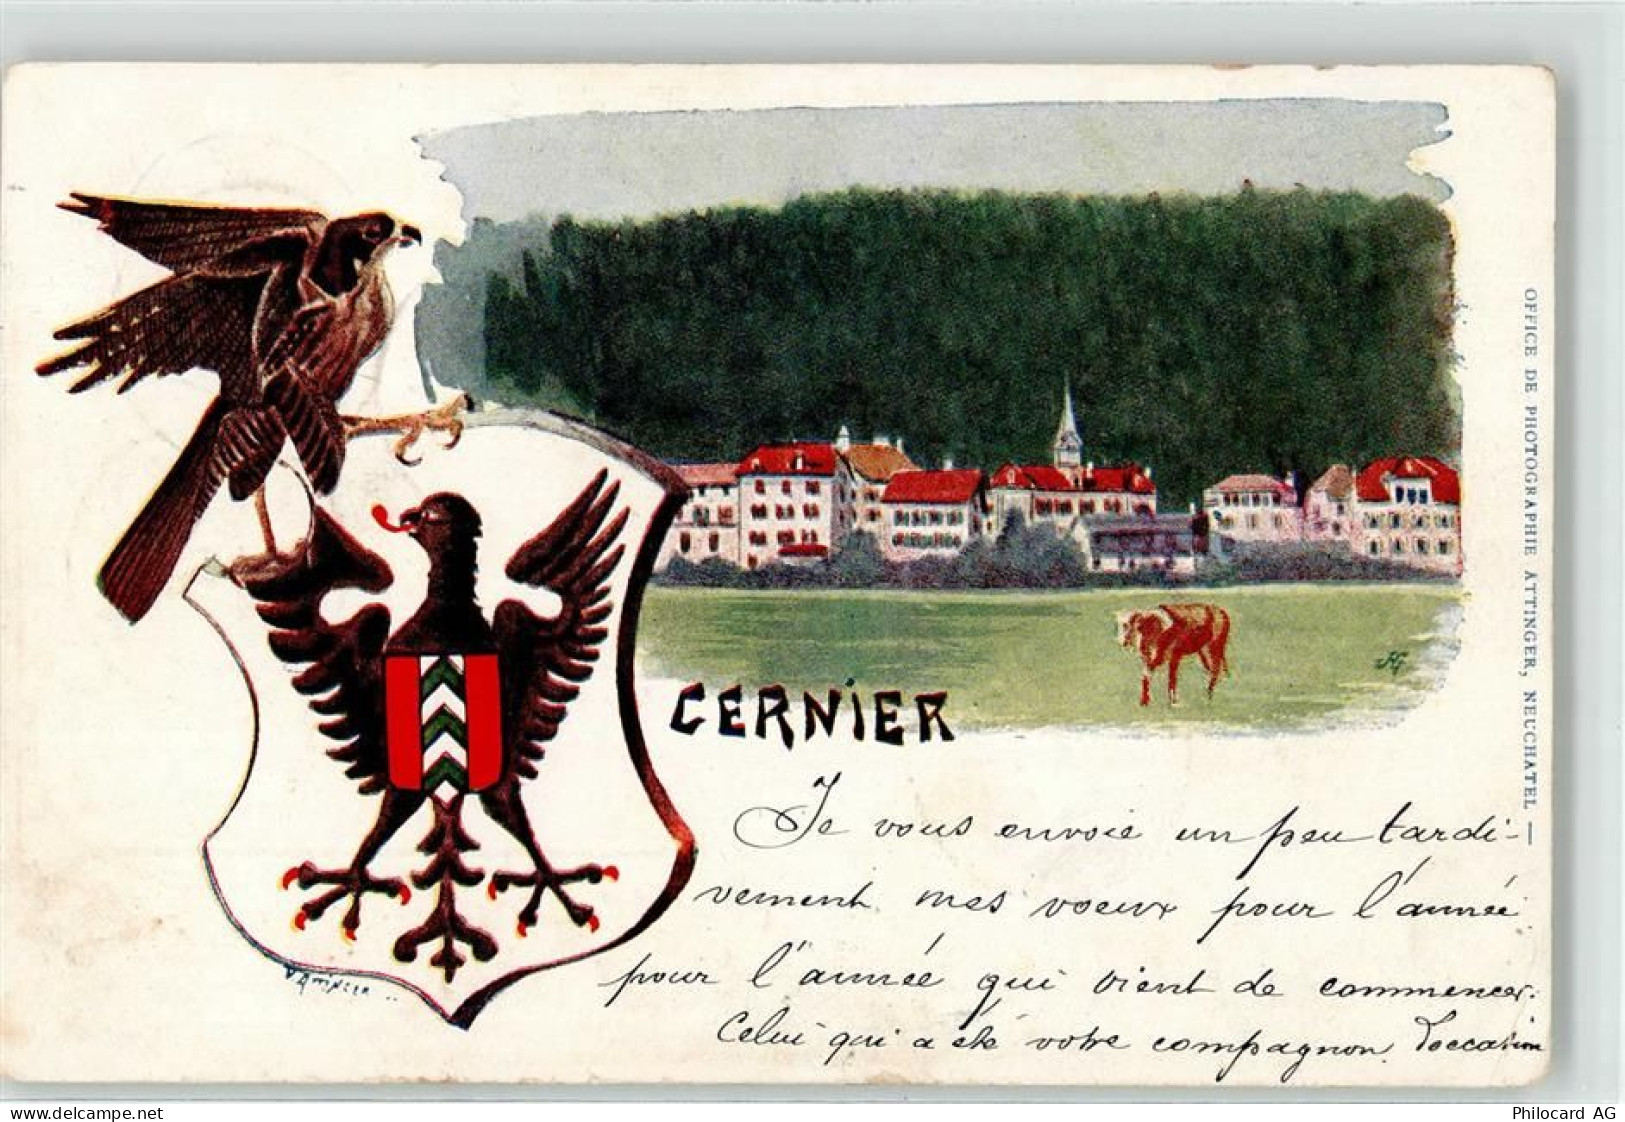 CERNIER
OFFICE DE PHOTOGRAPHIE ATTINGER, NEUCHATEL —
Je vous envoie un peu tardi-
vement mes voeux pour l'année
pour l'année qui vient de commencer.
Celui qui a été votre compagnon d'occasion
V ATTINGER ..
HG
www.delcampe.net
Philocard AG